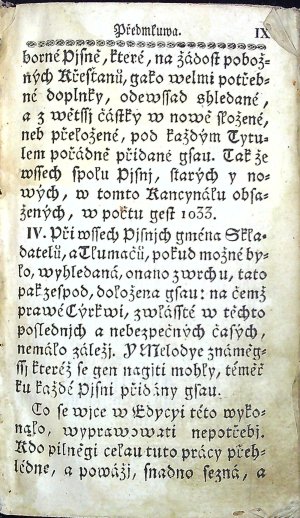 Předmluwa. IX
borné Pjsně, které, na žádost pobož-
ných Křestanů, gako welmi potřeb-
né doplnky, odewssad shledané,
a z wětssj částky w nowě složené,
neb přeložené, pod každým Tytu-
lem pořádně přidané gsau. Tak že
wssech spolu Pjsnj, starých y no-
wých, w tomto Kancynálu obsa-
žených, w počtu gest 1033.
IV. Při wssech Pjsnjch gména Skla-
datelů, a Tlumačů, pokud možné by-
lo, wyhledaná, onano zwrchu, tato
pak zespod, doložena gsau: na čemž
prawé Cýrkwi, zwlásstě w těchto
poslednjch a nebezpečných časých,
nemálo záležj. Y Melodye známěg-
ssj kteréž se gen nagiti mohly, téměř
ku každé Pjsni přidány gsau.
Co se wjce w Edycyi této wyko-
nalo, wyprawowati nepotřebj.
Kdo pilněgi celau tuto prácy přeh-
lédne, a powážj, snadno sezná, a